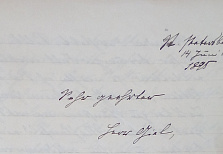 St. Petersb
14 Juni
1895
Sehr geehrter
Herr Giel,